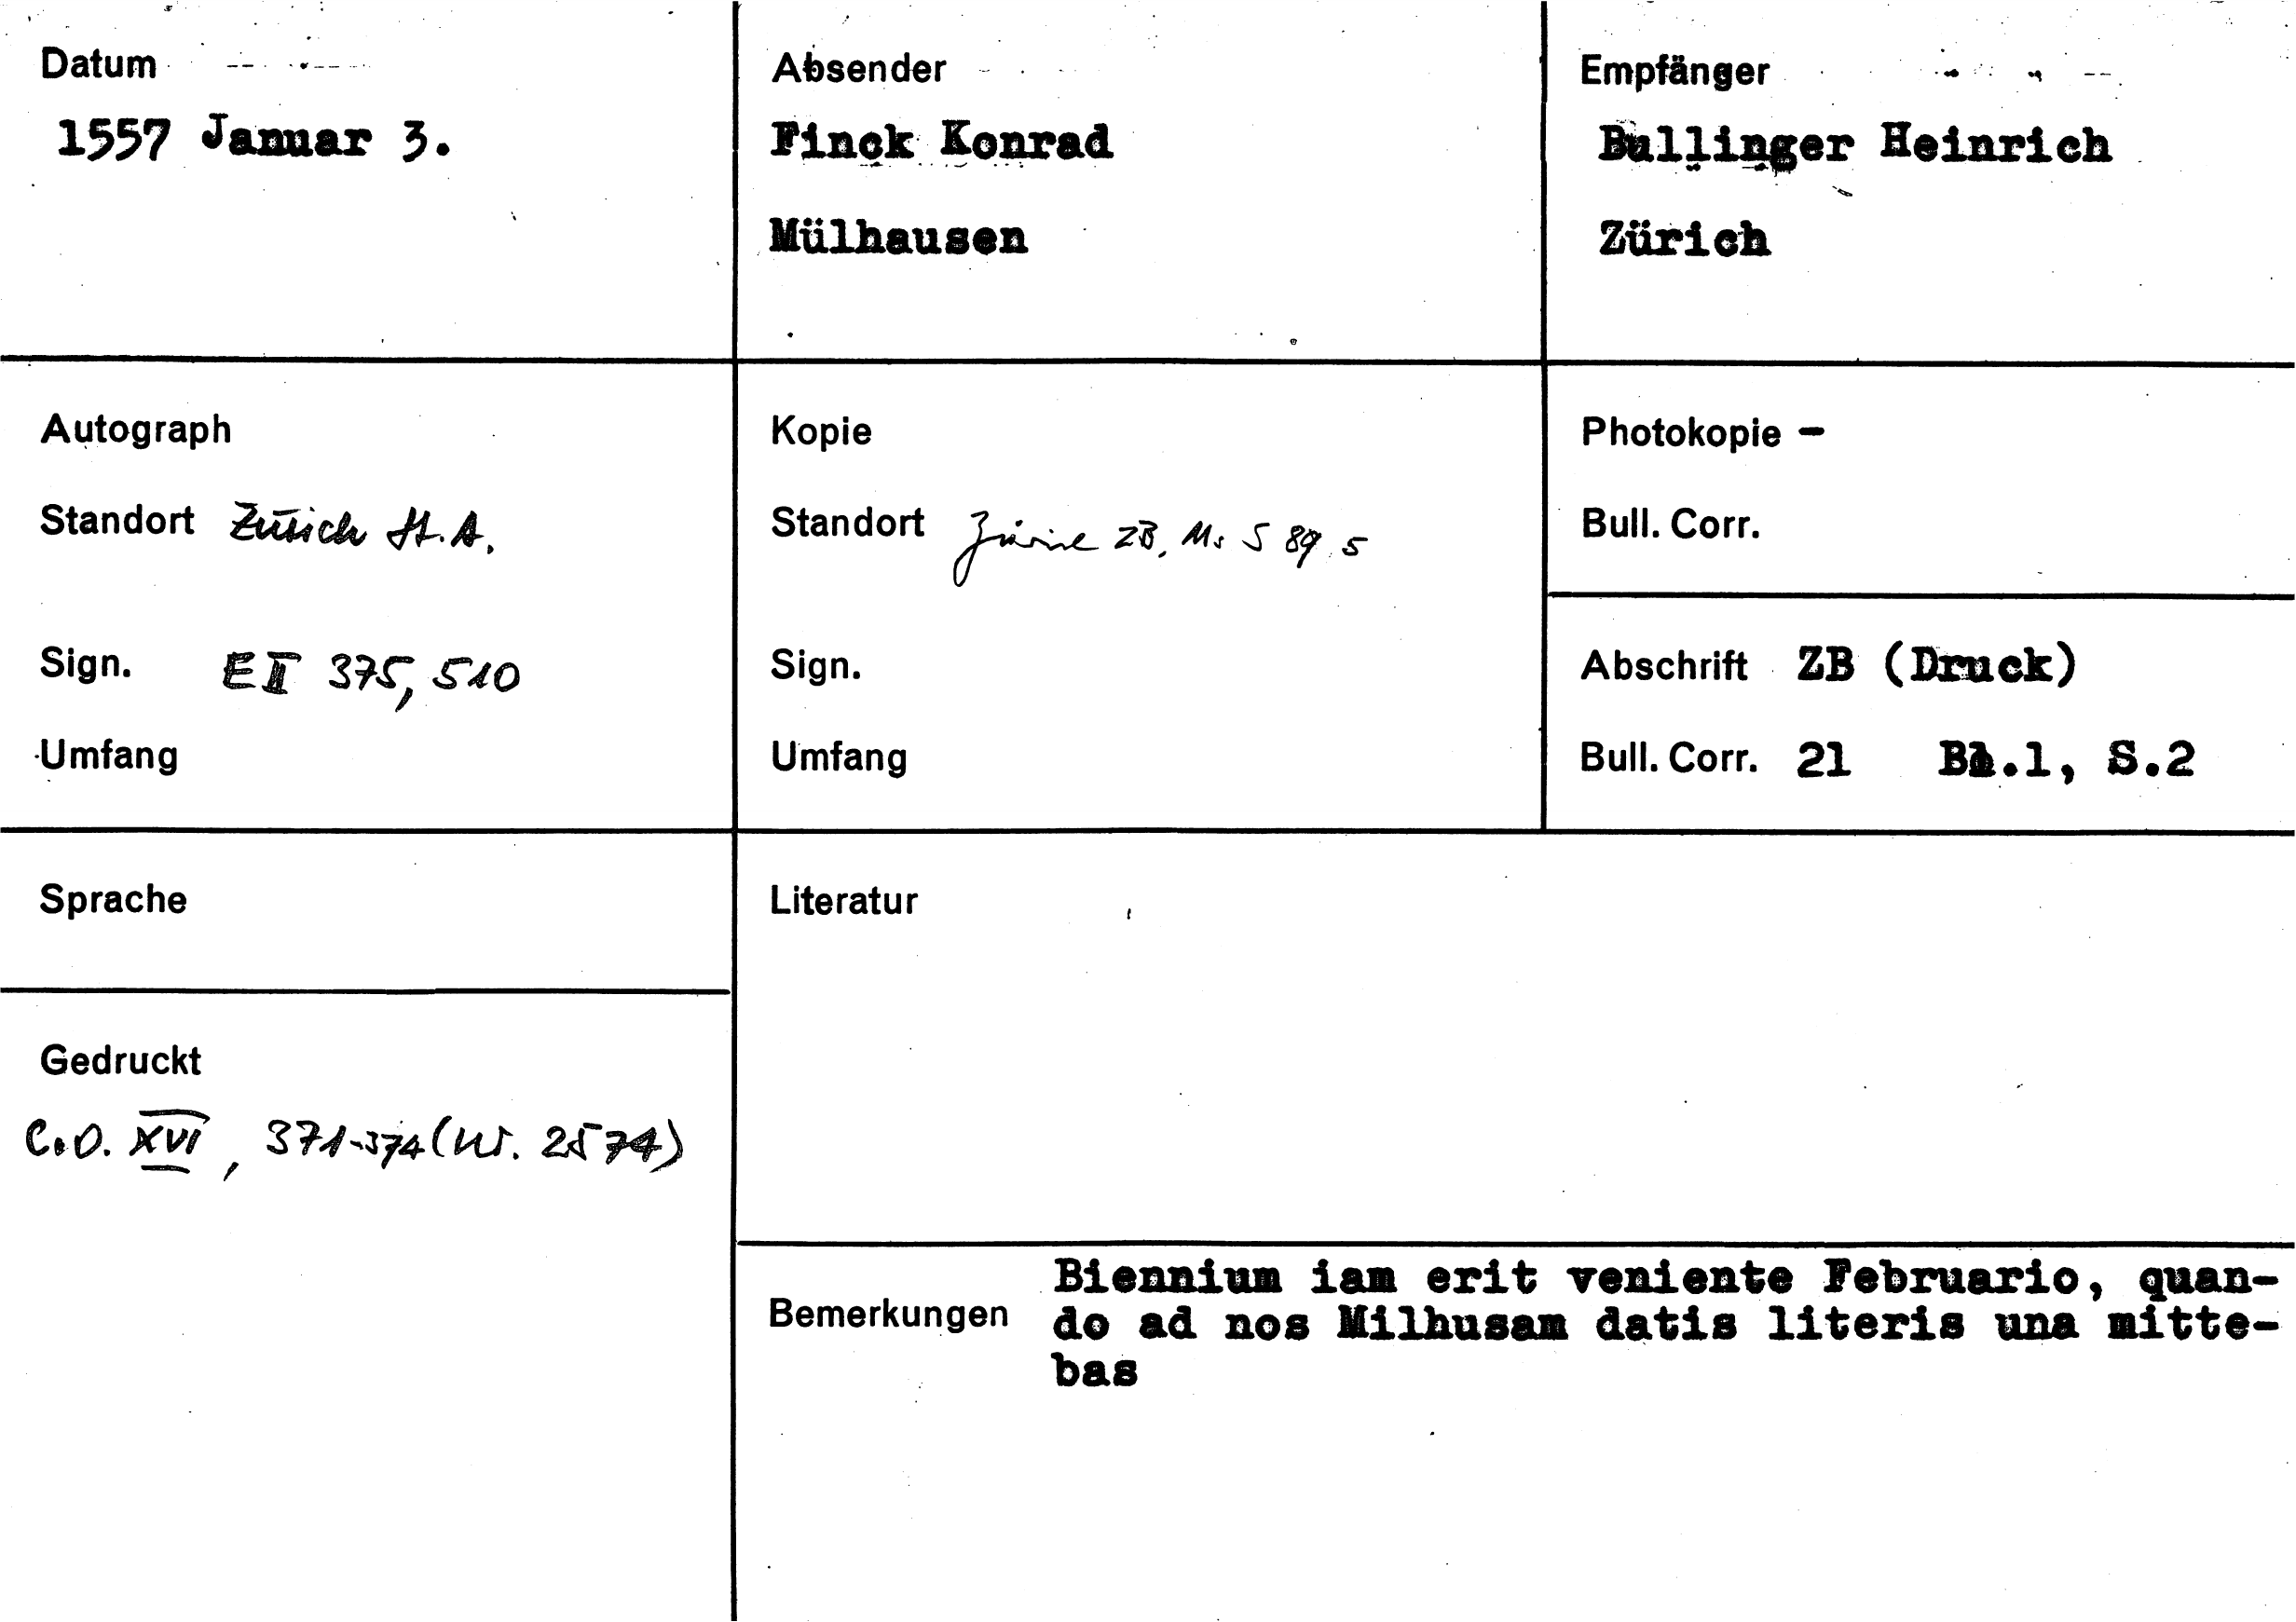 Datum
1557 Januar 3.
Absender
Finck Konrad
Mülhausen
Empfänger
Bullinger Heinrich
Zürich
Autograph
Standort Zürich St. A.
Sign. E II 375, 510
Umfang
Kopie
Standort Zürich ZB, Ms S 89, 5
Sign.
Umfang
Photokopie -
Bull. Corr.
Abschrift ZB (Druck)
Bull. Corr. 21 Bl.1, S.2
Sprache
Gedruckt
C.O. XVI, 371-374 (Nr. 2574)
Literatur
Bemerkungen
Biennium iam erit veniente Februario, quan-
do ad nos Milhusam datis literis una mitte-
bas